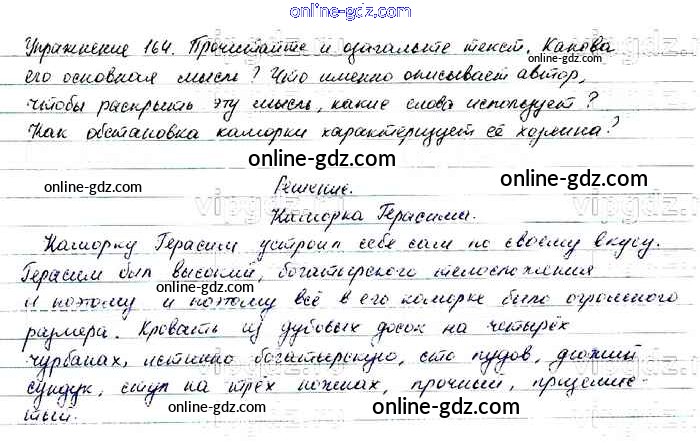 online-gdz.com
Упражнение 164. Прочитайте и озаглавьте текст. Какова
его основная мысль? Что именно описывает автор,
чтобы раскрыть эту мысль, какие слова использует?
Как обстановка каморки характеризует её хозяина?
online-gdz.com
online-gdz.com Решение. online-gdz.com
Каморка Герасима.
online-gdz.com
Каморку Герасим устроил себе сам по своему вкусу.
Герасим был высокий, богатырского телосложения
online-gdz.com
И поэтому и поэтому всё в его каморке было огромного
размера. Кровать из дубовых досок на четырёх
online-gdz.com
чурбанах, истинно богатырскую, сто пудов, дюжий
сундук, стул на трёх ножках, прочный, приземис-
тый.
online-gdz.com online-gdz.com
online-gdz.com